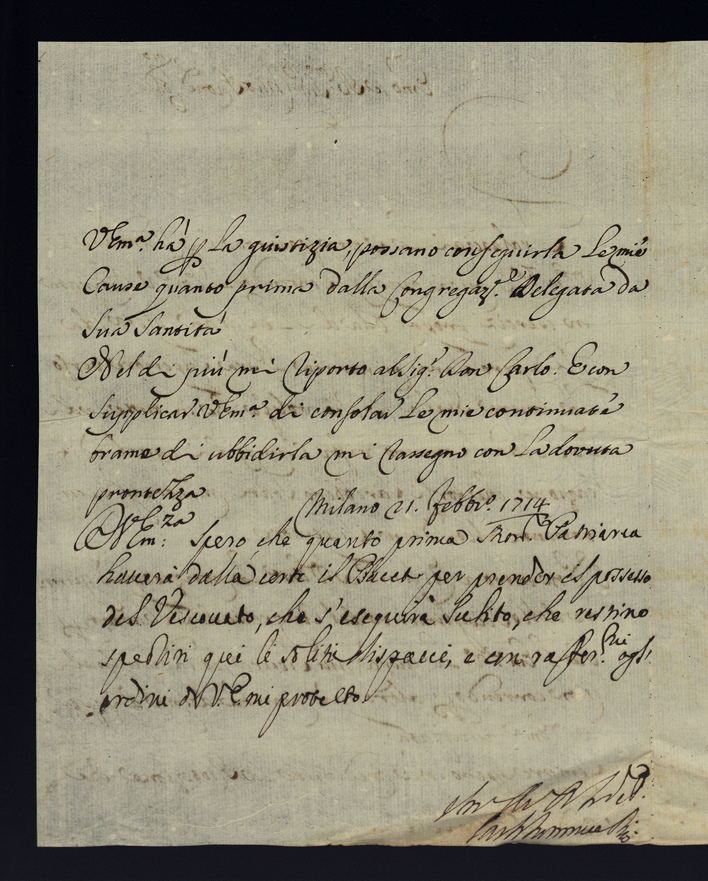 V Em.ª há p la giustizia, possano conseguirla le mie
Cause quanto prima dalla Congregaz.e Delegata da
Sua Santità
Nel di più mi riporto al Sig.r Don Carlo. E con
supplicar V Em.ª di consolar le mie continuate
brame di ubbidirla mi rassegno con la dovuta
prontezza
Milano 21. Febbr.o 1714
Spero, che quanto prima Mons.r Patriarca
haverà dalla corte il per prender il possesso
del Vescovato, che s'eseguirà subito, che restino
spediti qui li soliti dispacci, e con agl'
ordini di V. E. mi protesto